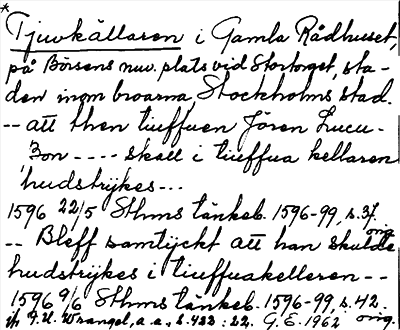 *
Tjuvkällaren i Gamla Rådhuset,
på Börsens nuv. plats vid Stortorget, sta-
den inom broarna, Stockholms stad.
-- att then tiuffuen Jören Lucu-
Zon ---- skall i tiuffua kellaren
hudstrÿkes---
1596 22/5 Sthms tänkeb. 1596-99, s.37. orig.
-- Bleff samtÿckt att han skulde
hudstrijkes i tiuffuakelleren --
1596 9/6 Sthms tänkeb. 1596-99, s.42. orig.
jfr F.U. Wrangel, a.a., s.422:22. G.E. 1962